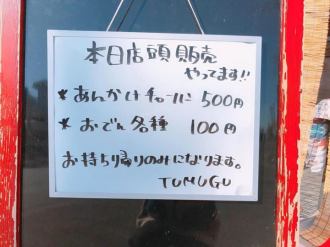 本日店頭販売
やってます!!
* あんかけチャーハン 500円
* おでん各種 100円
お持ち帰りのみになります。
TUMUGU